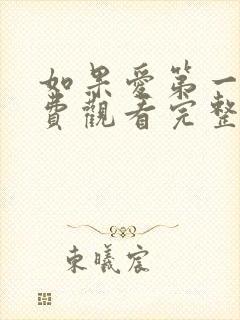 如果愛第一
費觀看完整
東曦宸